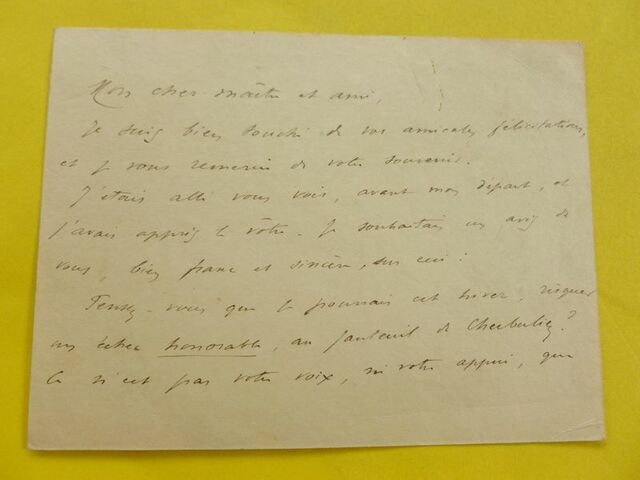 Mon cher maître et ami,
Je suis bien touché de vos amicales félicitations,
et je vous remercie de votre souvenir.
J'étais allé vous voir, avant mon départ, et
j'avais appris le vôtre. Je souhaitais un avis de
vous, bien franc et sincère, sur ceci :
Pensez-vous que je pourrais cet hiver, risquer
un échec honorable, au fauteuil de Cherbuliez ?
Ce n'est pas votre voix, ni votre appui, que